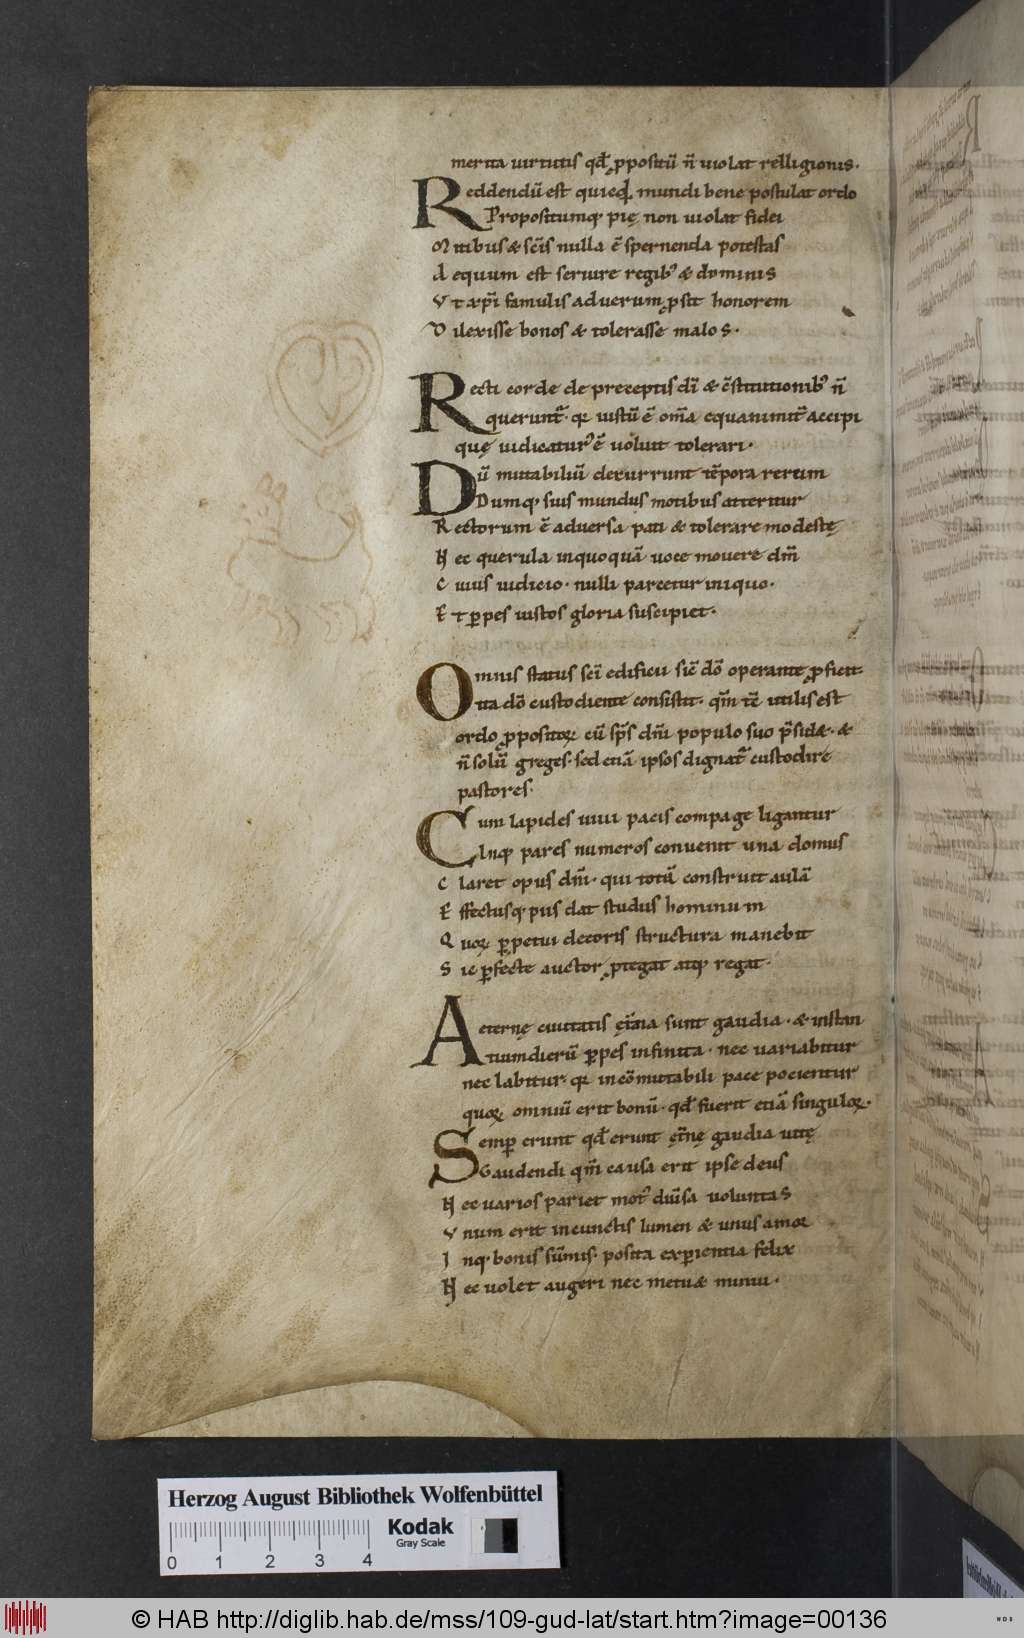 merita uirtutis qđ ꝓpositū ñ uiolat relligionis.
Reddendū est quicq̄d mundi bene postulat ordo
Propositumq; pię non uiolat fidei
Mitibus & sc̄is nulla ē spernenda potestas
Aequum est seruire regib; & dominis
Vt xp̄i famulis ad uerum ꝓsit honorem
Dilexisse bonos & tolerasse malos.
Recti corde de preceptis dī & c̄stitutionib; ñ
querunt̄. q; iustū ē om̄a equanimit̄ accipi
quę iudicatur; ē uoluit tolerari.
Dū mutabiliū decurrunt tēpora rerum
Dumq; suis mundus motibus atteritur
Rectorum ē aduersa pati & tolerare modestę
Nec querula in quoquā uoce mouere dm̄
Cuius iudicio. nulli parcetur iniquo.
Et ꝑpes iustos gloria suscipiet.
Omnis status sc̄i edificii sic̄ dō operante ꝓficit.
ita dō custodiente consistit. qm̄ tc̄ utilis est
ordo ꝓpositoꝝ cū sp̄s dn̄i populo suo p̄sidæ. &
ñ solū greges. sed etiā ipsos dignat̄ custodire
pastores.
Cum lapides uiui pacis compage ligantur
Inq; pares numeros conuenit una domus
Claret opus dn̄i. qui totū construit aulā
Effectusq; piis dat studiis hominum
Quoꝝ ꝑpetui decoris structura manebit
Sic ꝑfecte auctor ꝓtegat atq; regat.
Aeternę ciuitatis ęt̄na sunt gaudia. & instan
tium dierū ꝑpes infinita. nec uariabitur
nec labitur. q; incōmutabili pace pocientur
quoꝝ omniū erit bonū. qđ fuerit etiā singuloꝝ.
Semꝑ erunt qđ erunt ęt̄nę gaudia uitę
Gaudendi qm̄ causa erit ipse deus
Nec uarios pariet mot; diūsa uoluntas
Vnum erit in cunctis lumen & unus amor
Inq; bonis sūmis. posita exꝑientia felix
Nec uolet augeri nec metuæ minui.
Herzog August Bibliothek Wolfenbüttel
Kodak
Gray Scale
0 1 2 3 4
© HAB http://diglib.hab.de/mss/109-gud-lat/start.htm?image=00136